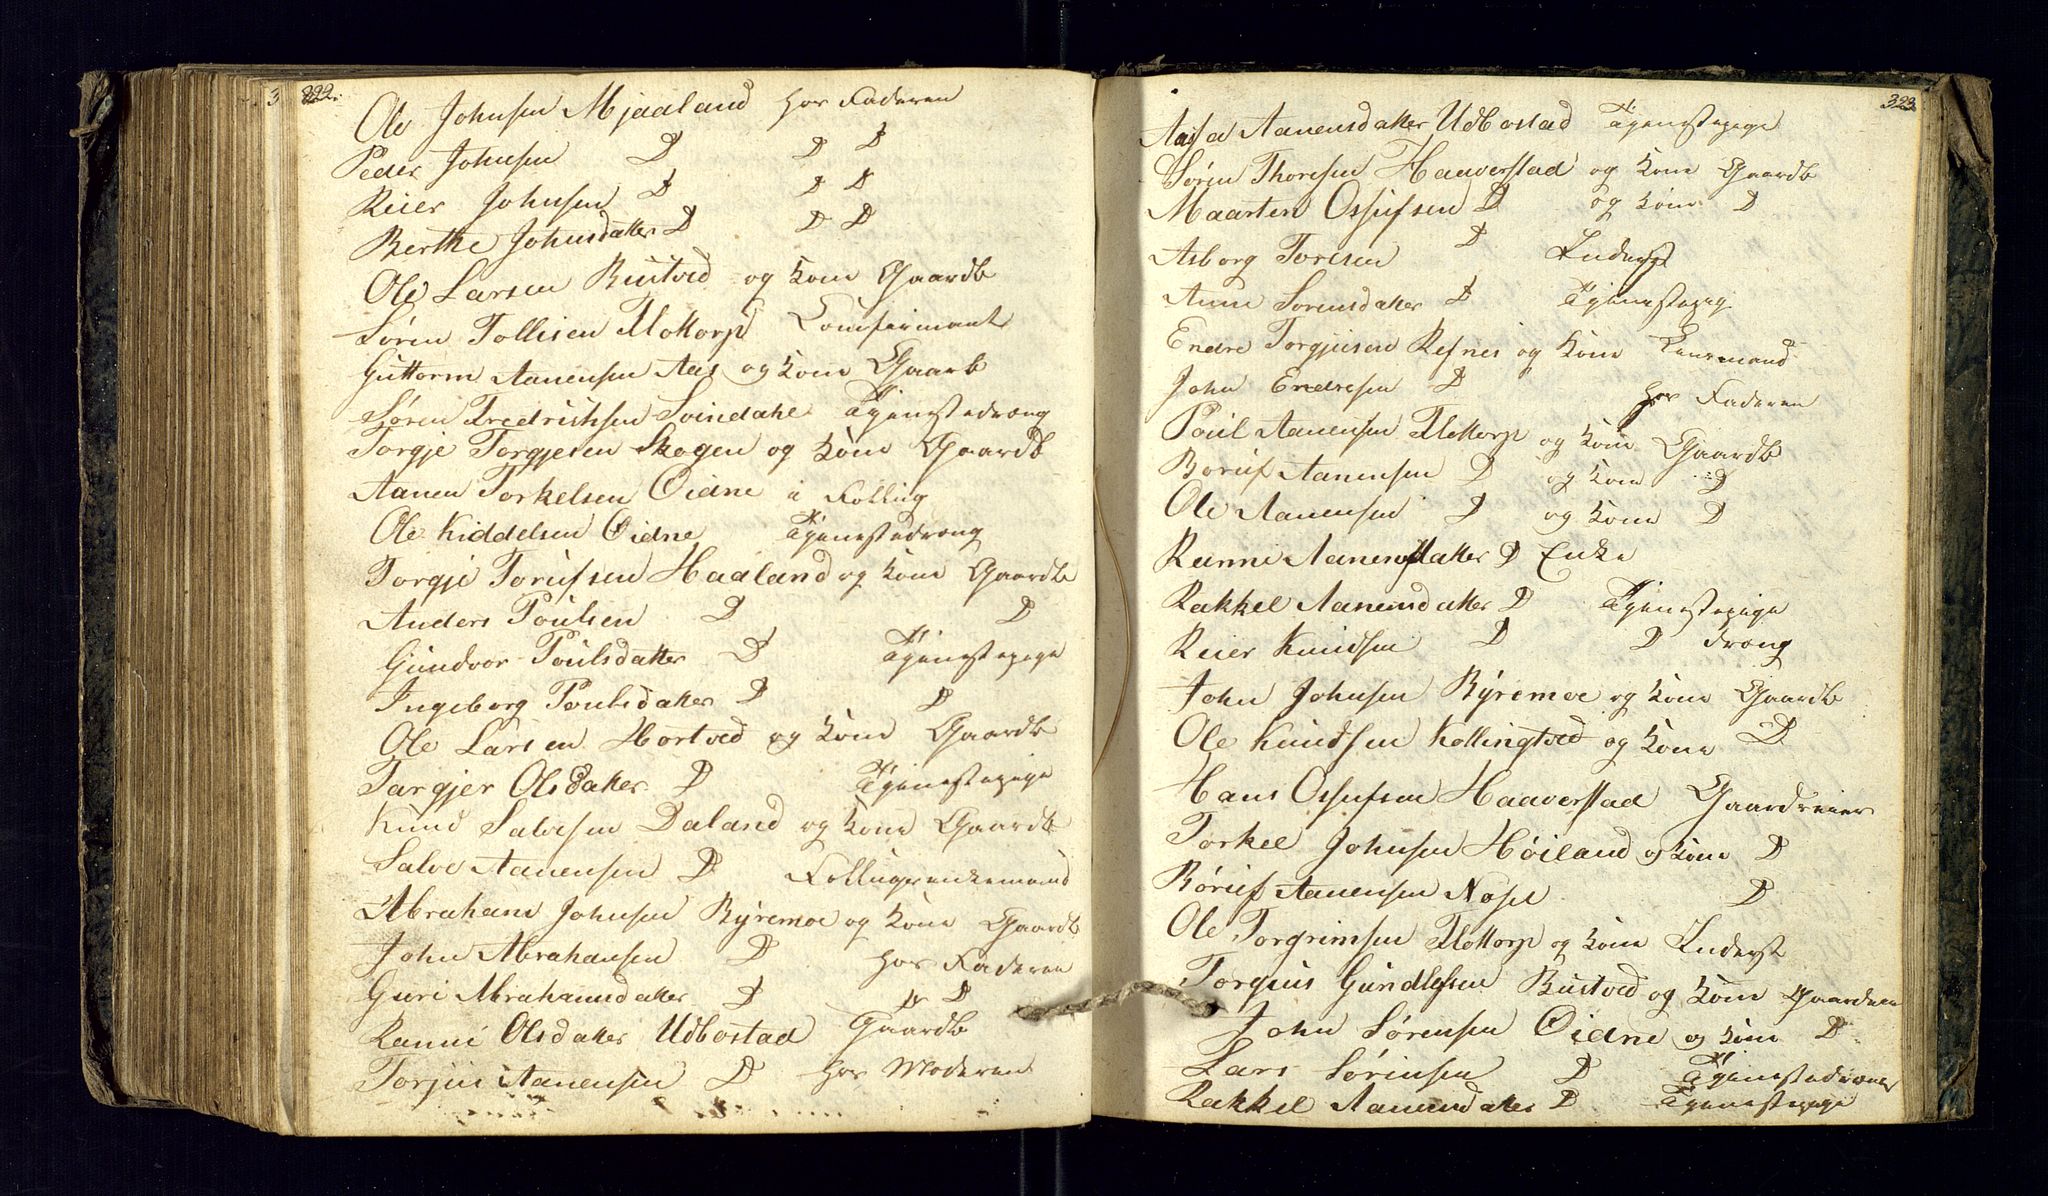 3 222.
Ole Johnsen Mjaaland hos Faderen
Peder Johnsen D D D
Reier Johnsen D D D
Berthe Johnsdatter D D D
Ole Larsen Bustved og Kone Gaardb
Søren Tollisen Flottorp Confirmant
Guttorm Aanensen Aas og Kone Gaarb
Søren Fredrichsen Svindahl Tjenestedreng
Torgje Torgjesen Skogen og Kone Gaardb
Aanen Torkelsen Øidne i Follug
Ole Kiddelsen Øidne Tjenestedreng
Torgje Torufsen Haaland og Kone Gaardb
Anders Poulsen D D
Gundvor Poulsdatter D Tjenestepige
Ingeborg Poulsdatter D D
Ole Larsen Hortved og Kone Gaardb
Targjer Olsdatter D Tjenestepige
Knud Salvesen Daland og Kone Gaardb
Salve Aanensen D Follugsenkemand
Abraham Johnsen Ryremoe og Kone Gaardb
John Abrahamsen D hos Faderen
Guri Abrahamsdatter D D D
Ranni Olsdatter Udbostad Gaardb
Torjus Aanensen D hos Moderen
323
Aasa Aanensdatter Udbostad Tjenestepige
Søren Thoresen Haaverstad og Kone Gaardb
Maarten Ossufsen D og Kone D
Asborg Toresen D Inderst
Anne Sorensdatter D Tjenestepig
Endre Torgjusen Refnes og Kone Lensmand
John Endresen D hos Faderen
Poul Aanensen Flottorp og Kone Gaardb
Boruf Aanensen D og Kone D
Ole Aanensen D og Kone D
Ranni Aanensdatter D Enke
Rakkel Aanensdatter D Tjenestepige
Reier Knudsen D D dreng
John Johnsen Ryremoe og Kone Gaardb
Ole Knudsen Kollingtved og Kone D
Hans Ossufsen Haaverstad Gaardeier
Torkel Johnsen Høiland og Kone D
Børuf Aanensen D
Ole Torgrimsen Flottorp og Kone Inderst
Torgius Gundlefsen Bustved og Kone
John Sørensen Øidne og Kone D
Lars Sørensen D Tjenestedreng
Rakkel Aanensdatter D Tjenestepige